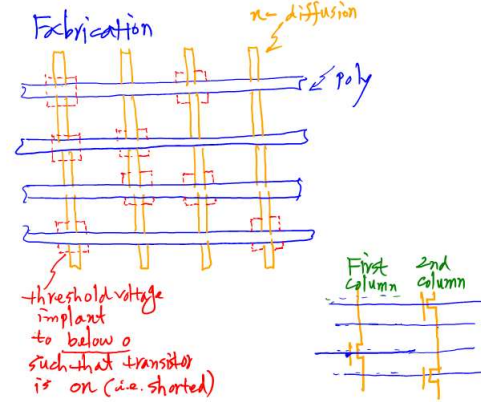 Fabrication
n- diffusion
poly
threshold voltage
implant
to below 0
such that transistor
is on (i.e. shorted)
First
column
2nd
column